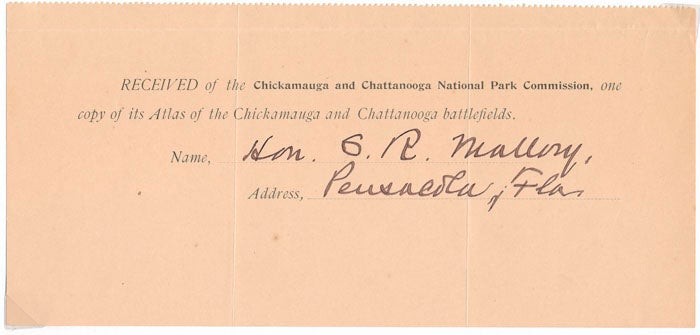 RECEIVED of the Chickamauga and Chattanooga National Park Commission, one
copy of its Atlas of the Chickamauga and Chattanooga battlefields.
Name, Hon. S. R. Mallory,
Address, Pensacola, Fla.